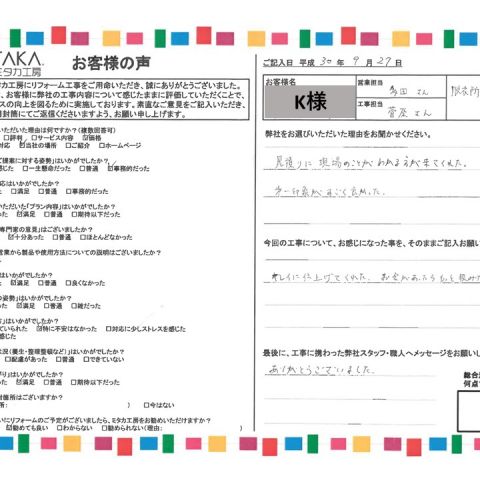 TAKA
ミタカ工房
お客様の声
タカ工房にリフォーム工事をご用命いただき、誠にありがとうございました。
、お客様に弊社の工事内容について感じたままに評価していただくことで、
スの向上を図るために実施しております。率直なご意見をご記入いただき、
封筒にてご返信くださいますよう、お願い申し上げます。
いただいた理由は何ですか?(複数回答可)
□評判 □サービス内容 ☑価格
対応 ☑当社の場所 □ご紹介 □ホームページ
ご提案に対する姿勢」はいかがでしたか?
感じた □一生懸命だった □普通 ☑事務的だった
応はいかがでしたか?
った □満足 □普通 □事務的だった
いただいた「プラン内容」はいかがでしたか?
った ☑満足 □普通 □期待以下だった
専門家の意見」はございましたか?
☑十分あった □普通 □ほとんどなかった
営業から製品や使用方法についての説明はございましたか?
はいかがでしたか?
☑満足 □普通 □良くなかった
の姿勢」はいかがでしたか?
った ☑満足 □普通 □雑だった
」はいかがでしたか?
ていられた ☑特に不安はなかった □対応に少しストレスを感じた
じた
状況(養生・整理整頓など)」はいかがでしたか?
□配慮があった □普通 □できていない
がり」はいかがでしたか?
った ☑満足 □普通 □期待以下だった
対箇所はございますか?
所: ) □今はない
いにリフォームのご予定がございましたら、ミタカ工房をお勧めいただけますか?
勧めても良い □わからない □勧められない(理由: )
ご記入日 平成 30 年 9 月 27 日
お客様名
K様
営業担当
多田 さん
工事担当
菅原 さん
弊社をお選びいただいた理由をお聞かせください。
見積りに現場のことがわかる方が来てくれた。
今回の工事について、お感じになった事を、そのままご記入お願い
キレイに仕上げてくれた。
最後に、工事に携わった弊社スタッフ・職人へメッセージをお願いし
ありがとうございました。
総合
何点